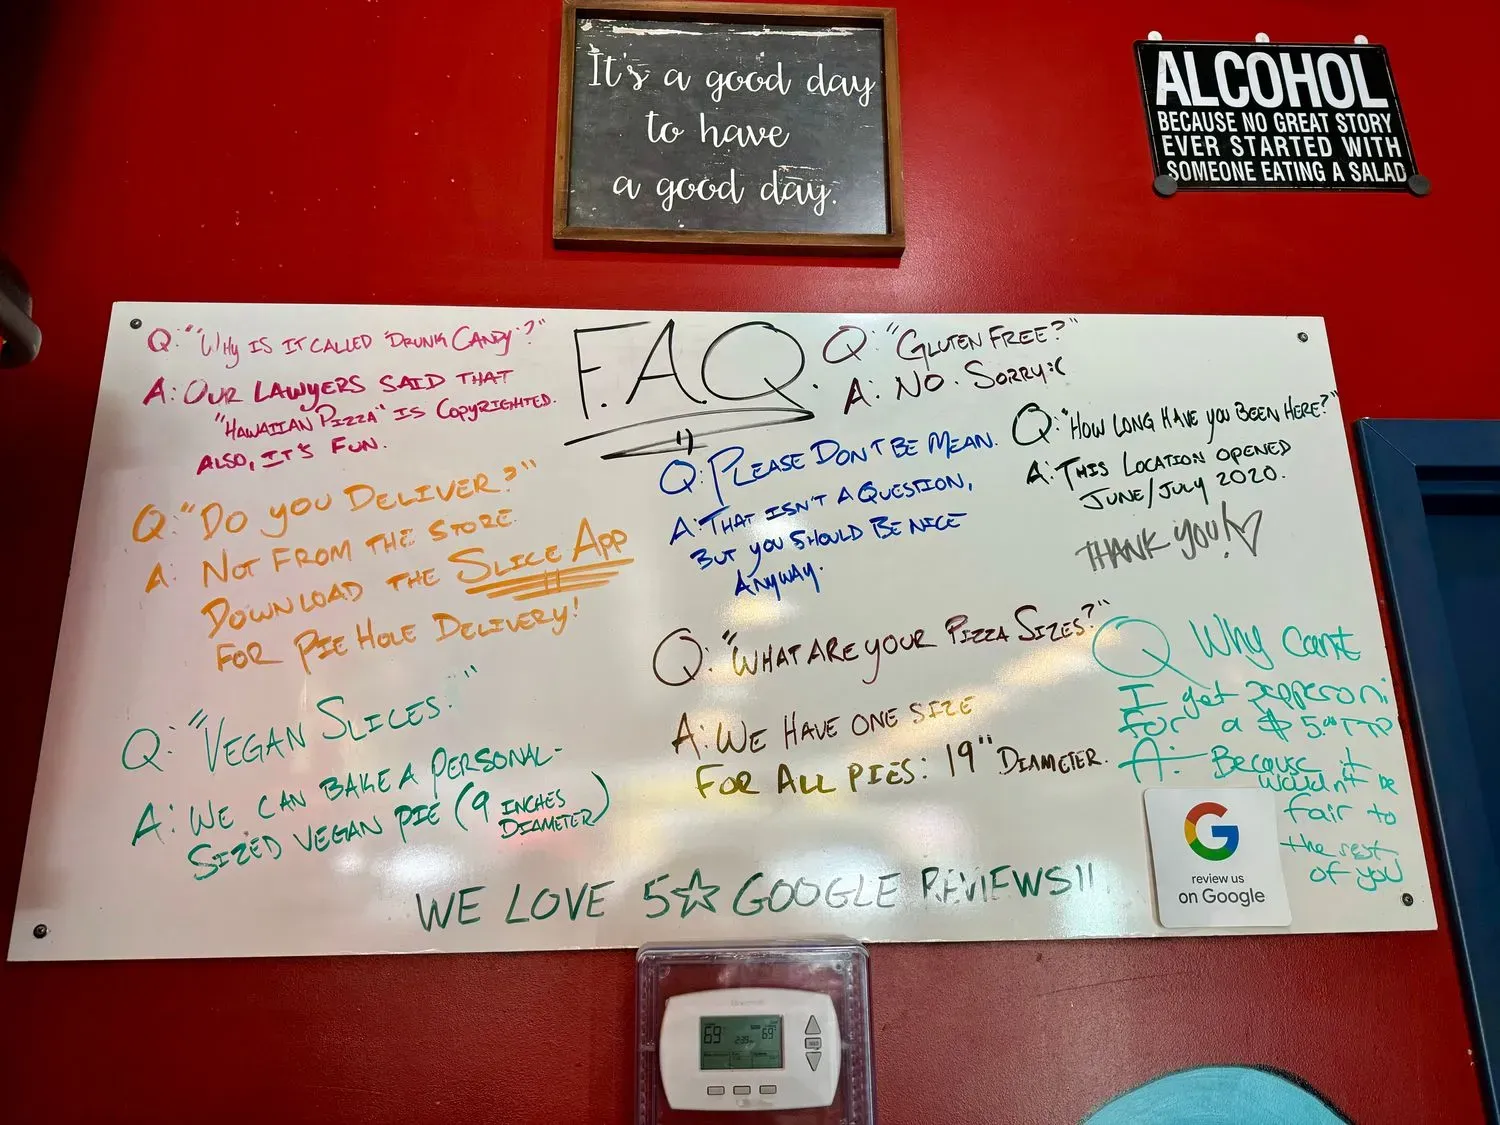 It's a good day
to have
a good day.
ALCOHOL
BECAUSE NO GREAT STORY
EVER STARTED WITH
SOMEONE EATING A SALAD
F.A.Q.
Q: "WHY IS IT CALLED 'DRUNK CANDY'?"
A: OUR LAWYERS SAID THAT
"HAWAIIAN PIZZA" IS COPYRIGHTED.
ALSO, IT'S FUN.
Q: "DO YOU DELIVER?"
A: NOT FROM THE STORE.
DOWNLOAD THE SLICE APP
FOR PIE HOLE DELIVERY!
Q: "VEGAN SLICES."
A: WE CAN BAKE A PERSONAL-
SIZED VEGAN PIE (9 INCHES
DIAMETER)
Q: "GLUTEN FREE?"
A: NO. SORRY :(
Q: PLEASE DON'T BE MEAN.
A: THAT ISN'T A QUESTION,
BUT YOU SHOULD BE NICE
ANYWAY.
Q: "HOW LONG HAVE YOU BEEN HERE?"
A: THIS LOCATION OPENED
JUNE/JULY 2020.
THANK YOU! ♡
Q: "WHAT ARE YOUR PIZZA SIZES?"
A: WE HAVE ONE SIZE
FOR ALL PIES: 19" DIAMETER.
Q Why Can't
I get pepperoni
for a $5.00 TTP
A: Because it
wouldn't be
fair to
the rest
of you
WE LOVE 5☆ GOOGLE REVIEWS!!
G
review us
on Google
69
69